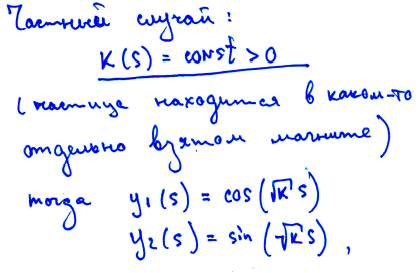 Частный случай:
K(s) = const > 0
(частица находится в каком-то
отдельно взятом магните)
тогда y₁(s) = cos(√K s)
y₂(s) = sin(√K s),